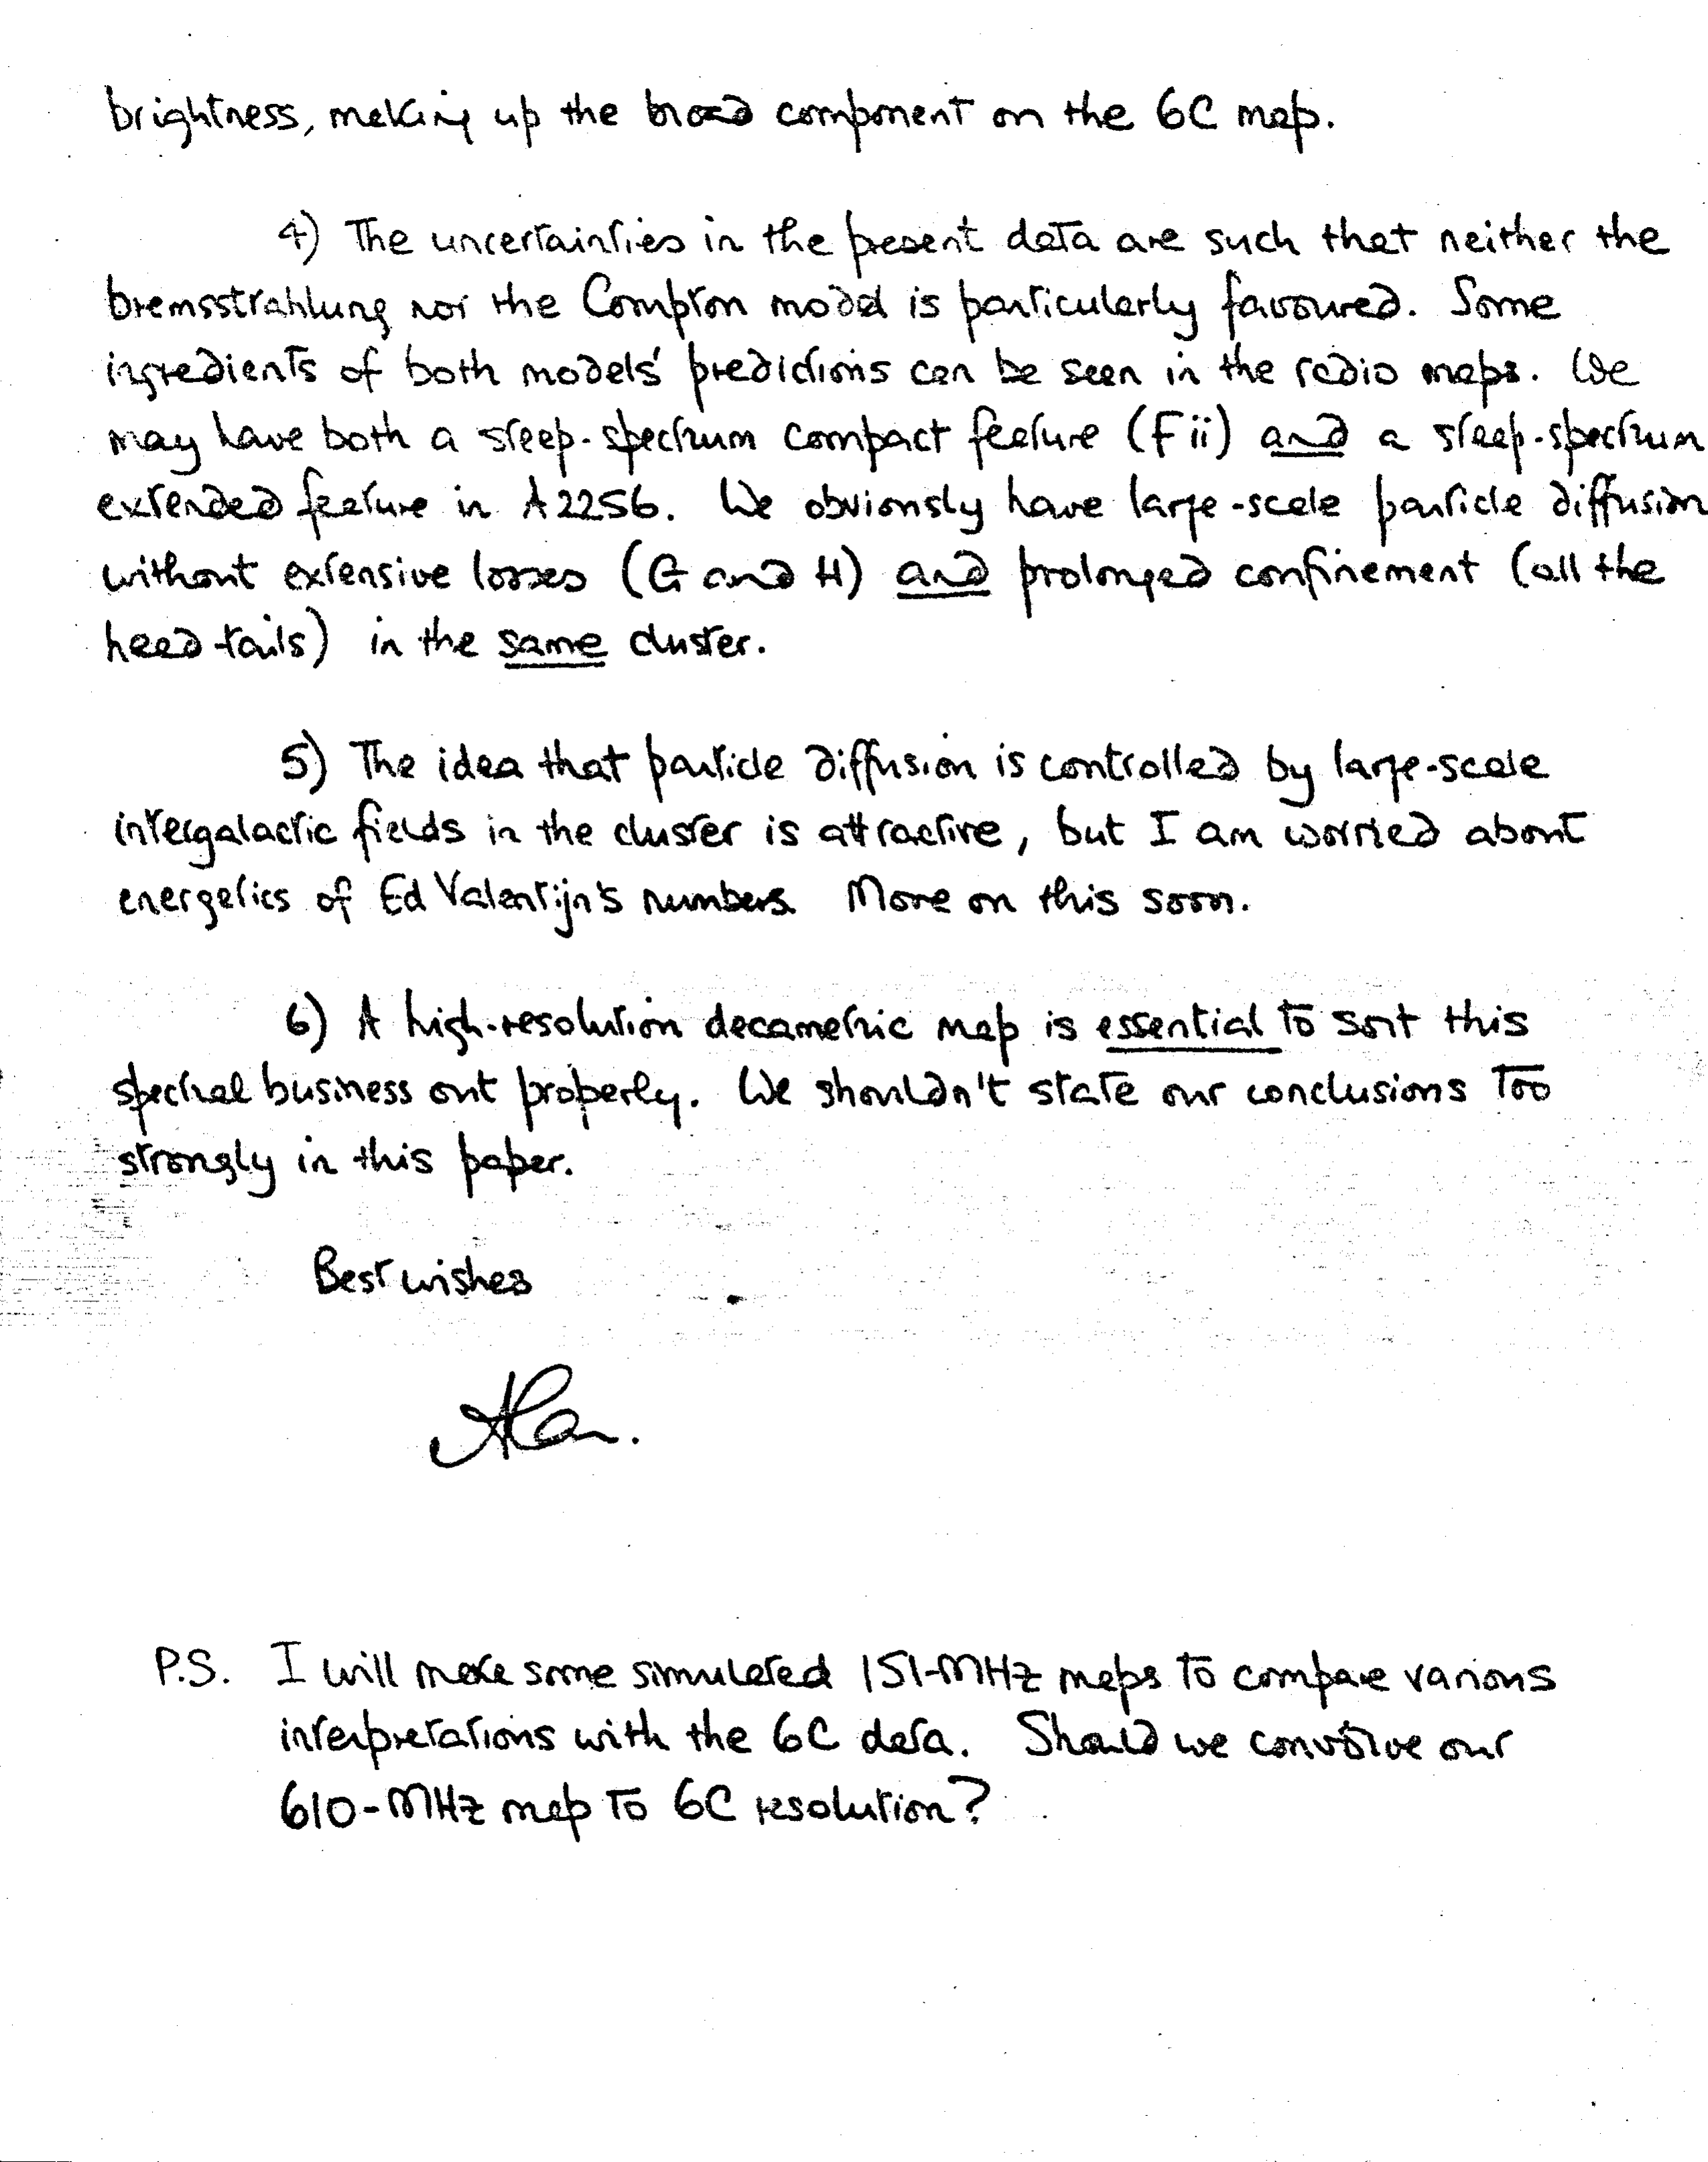 brightness, making up the broad component on the 6C map.
4) The uncertainties in the present data are such that neither the
bremsstrahlung nor the Compton model is particularly favoured. Some
ingredients of both models' predictions can be seen in the radio maps. We
may have both a steep-spectrum compact feature (Fii) and a steep-spectrum
extended feature in A2256. We obviously have large-scale particle diffusion
without extensive losses (G and H) and prolonged confinement (all the
head-tails) in the same cluster.
5) The idea that particle diffusion is controlled by large-scale
intergalactic fields in the cluster is attractive, but I am worried about
energetics of Ed Valentijn's numbers. More on this soon.
6) A high-resolution decametric map is essential to sort this
spectral business out properly. We shouldn't state our conclusions too
strongly in this paper.
Best wishes
Alan.
P.S. I will make some simulated 151-MHz maps to compare various
interpretations with the 6C data. Should we convolve our
610-MHz map to 6C resolution?